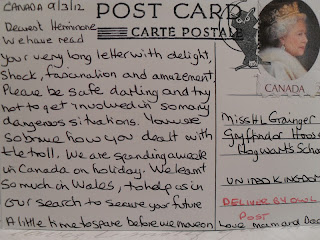 CANADA 9/3/12
POST CARD
CARTE POSTALE
Dearest Herminone
We have read
your very long letter with delight,
Shock, fascination and amuzement.
Please be safe darling and try
not to get involved in so many
dangerous situations. You were
so brave how you dealt with
the troll. We are spending a week
in Canada on holiday. We learnt
so much in Wales, to help us in
our search to secure your future
A little time to spare before we move on
CANADA
Miss H L Grainger
Gryffindor House
Hogwarts Scho
UNITED KINGDOM
DELIVER BY OWL
POST
Love mam and Dad